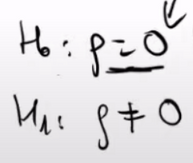 H₀ : ρ = 0
H₁ : ρ ≠ 0